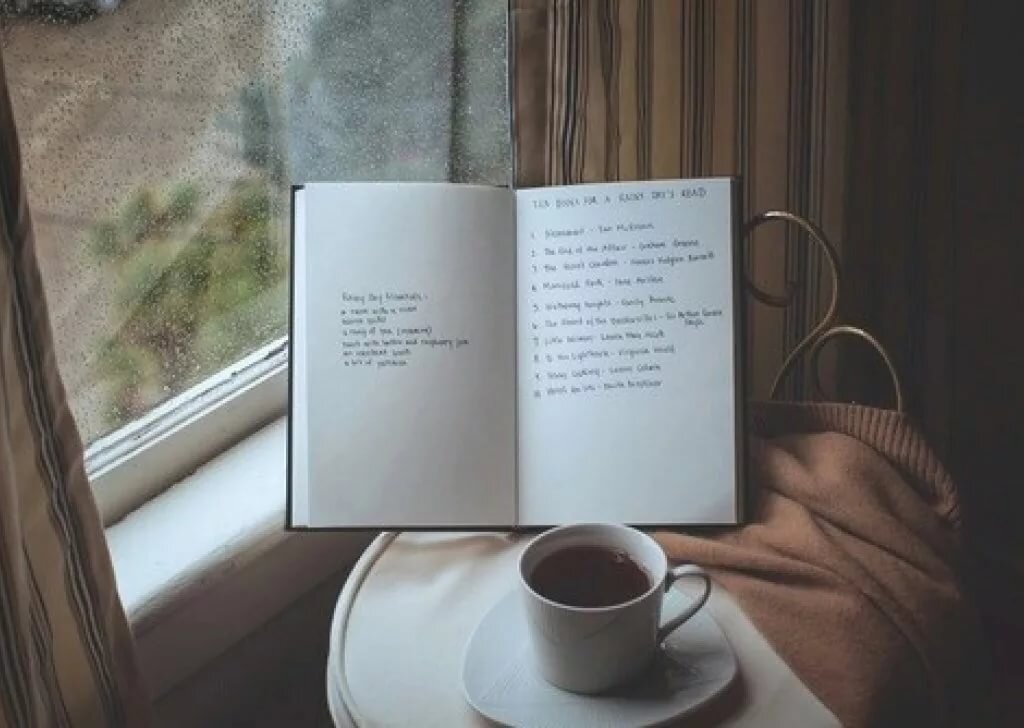 Rainy Day Essentials:
a room with a view
a mug of tea
toast with butter and raspberry jam
an excellent book
a bit of patience
TEN BOOKS FOR A RAINY DAY'S READ
1. Atonement - Ian McEwan
2. The End of the Affair - Graham Greene
3. The Secret Garden - Frances Hodgson Burnett
4. Mansfield Park - Jane Austen
5. Wuthering Heights - Emily Bronte
6. The Hound of the Baskervilles - Sir Arthur Conan
Doyle
7. Little Women - Louisa May Alcott
8. To the Lighthouse - Virginia Woolf
9.
10.